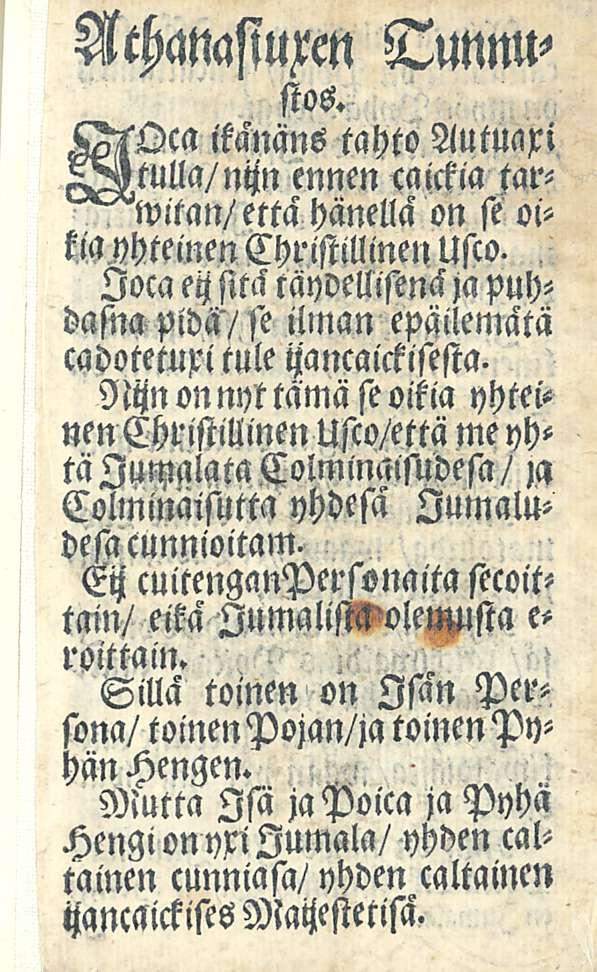 Athanasiuxen Tunnu⸗
stos.
JOca ikänäns tahto Autuaxi
tulla/ nijn ennen caickia tar⸗
witan/ että hänellä on se oi⸗
kia yhteinen Christillinen Usco.
Joca eij sitä täydellisenä ja puh⸗
dasna pidä/ se ilman epäilemätä
cadotetuxi tule ijancaickisesta.
Nijn on nyt tämä se oikia yhtei⸗
nen Christillinen Usco/että me yh⸗
tä Jumalata Colminaisudesa/ ja
Colminaisutta yhdesä Jumalu⸗
desa cunnioitam.
Eij cuitengan Personaita secoit⸗
tain/ eikä Jumalista olemusta e⸗
roittain.
Sillä toinen on Isän Per⸗
sona/ toinen Pojan/ja toinen Py⸗
hän Hengen.
Mutta Isä ja Poica ja Pyhä
Hengi on yxi Jumala/ yhden cal⸗
tainen cunniasa/ yhden caltainen
ijancaickises Maijestetisä.